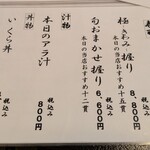 極きわみ握り
本日の当店おすすめ十五貫
税込み
8,600円
旬おまかせ握り
本日の当店おすすめ十二貫
税込み
6,800円
汁物
本日のアラ汁
税込み
800円
丼物
いくら丼
税込み